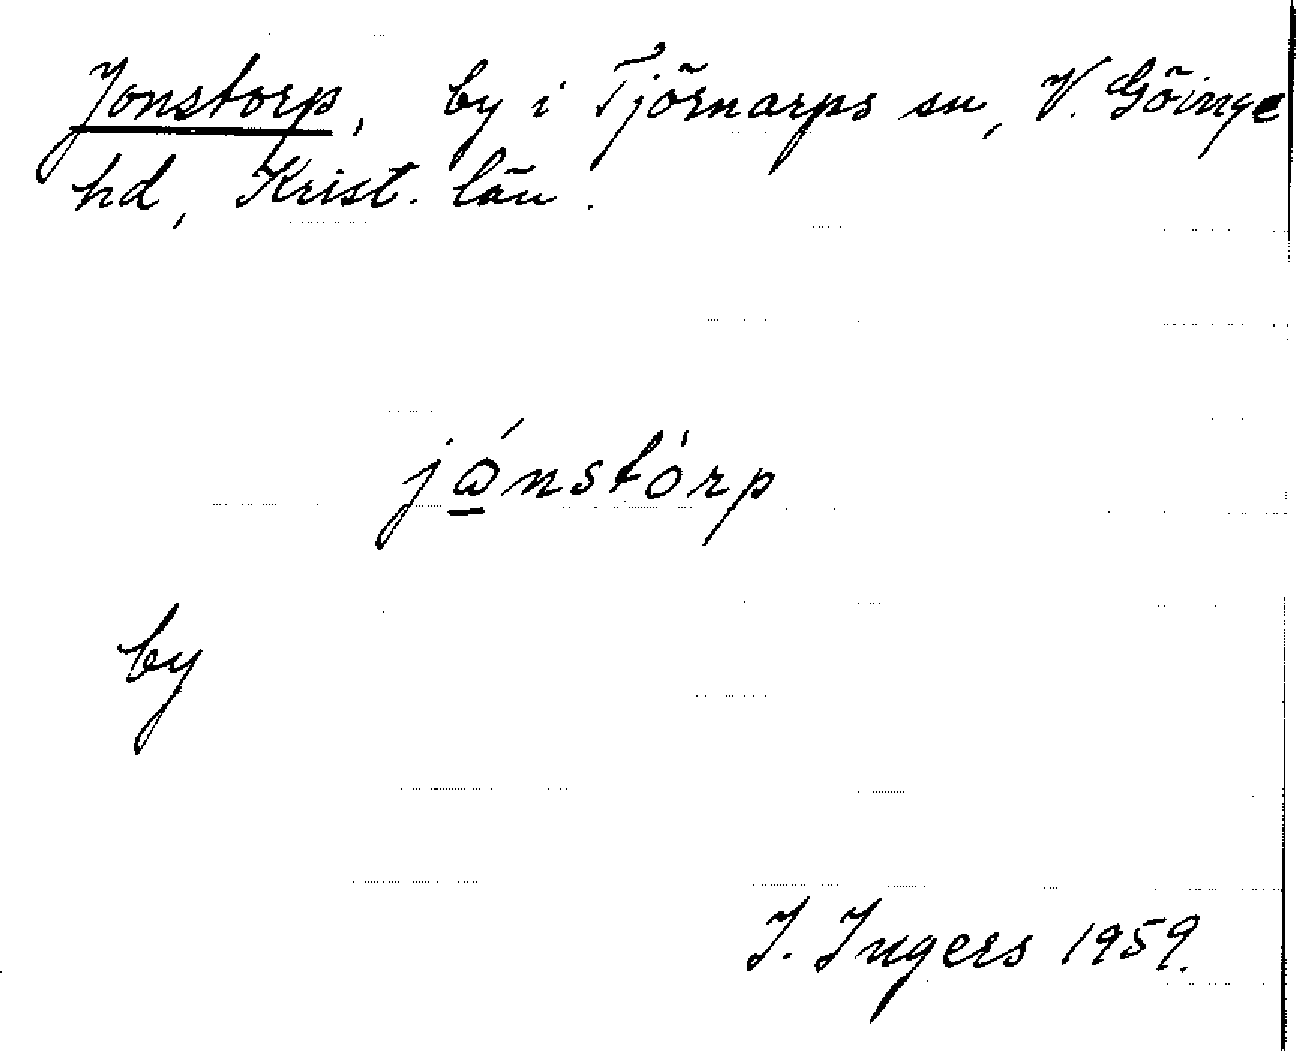 Jonstorp, by i Tjörnarps sn, V. Göinge
hd, Krist. län.
jǻnstòrp
by
I. Ingers 1959.